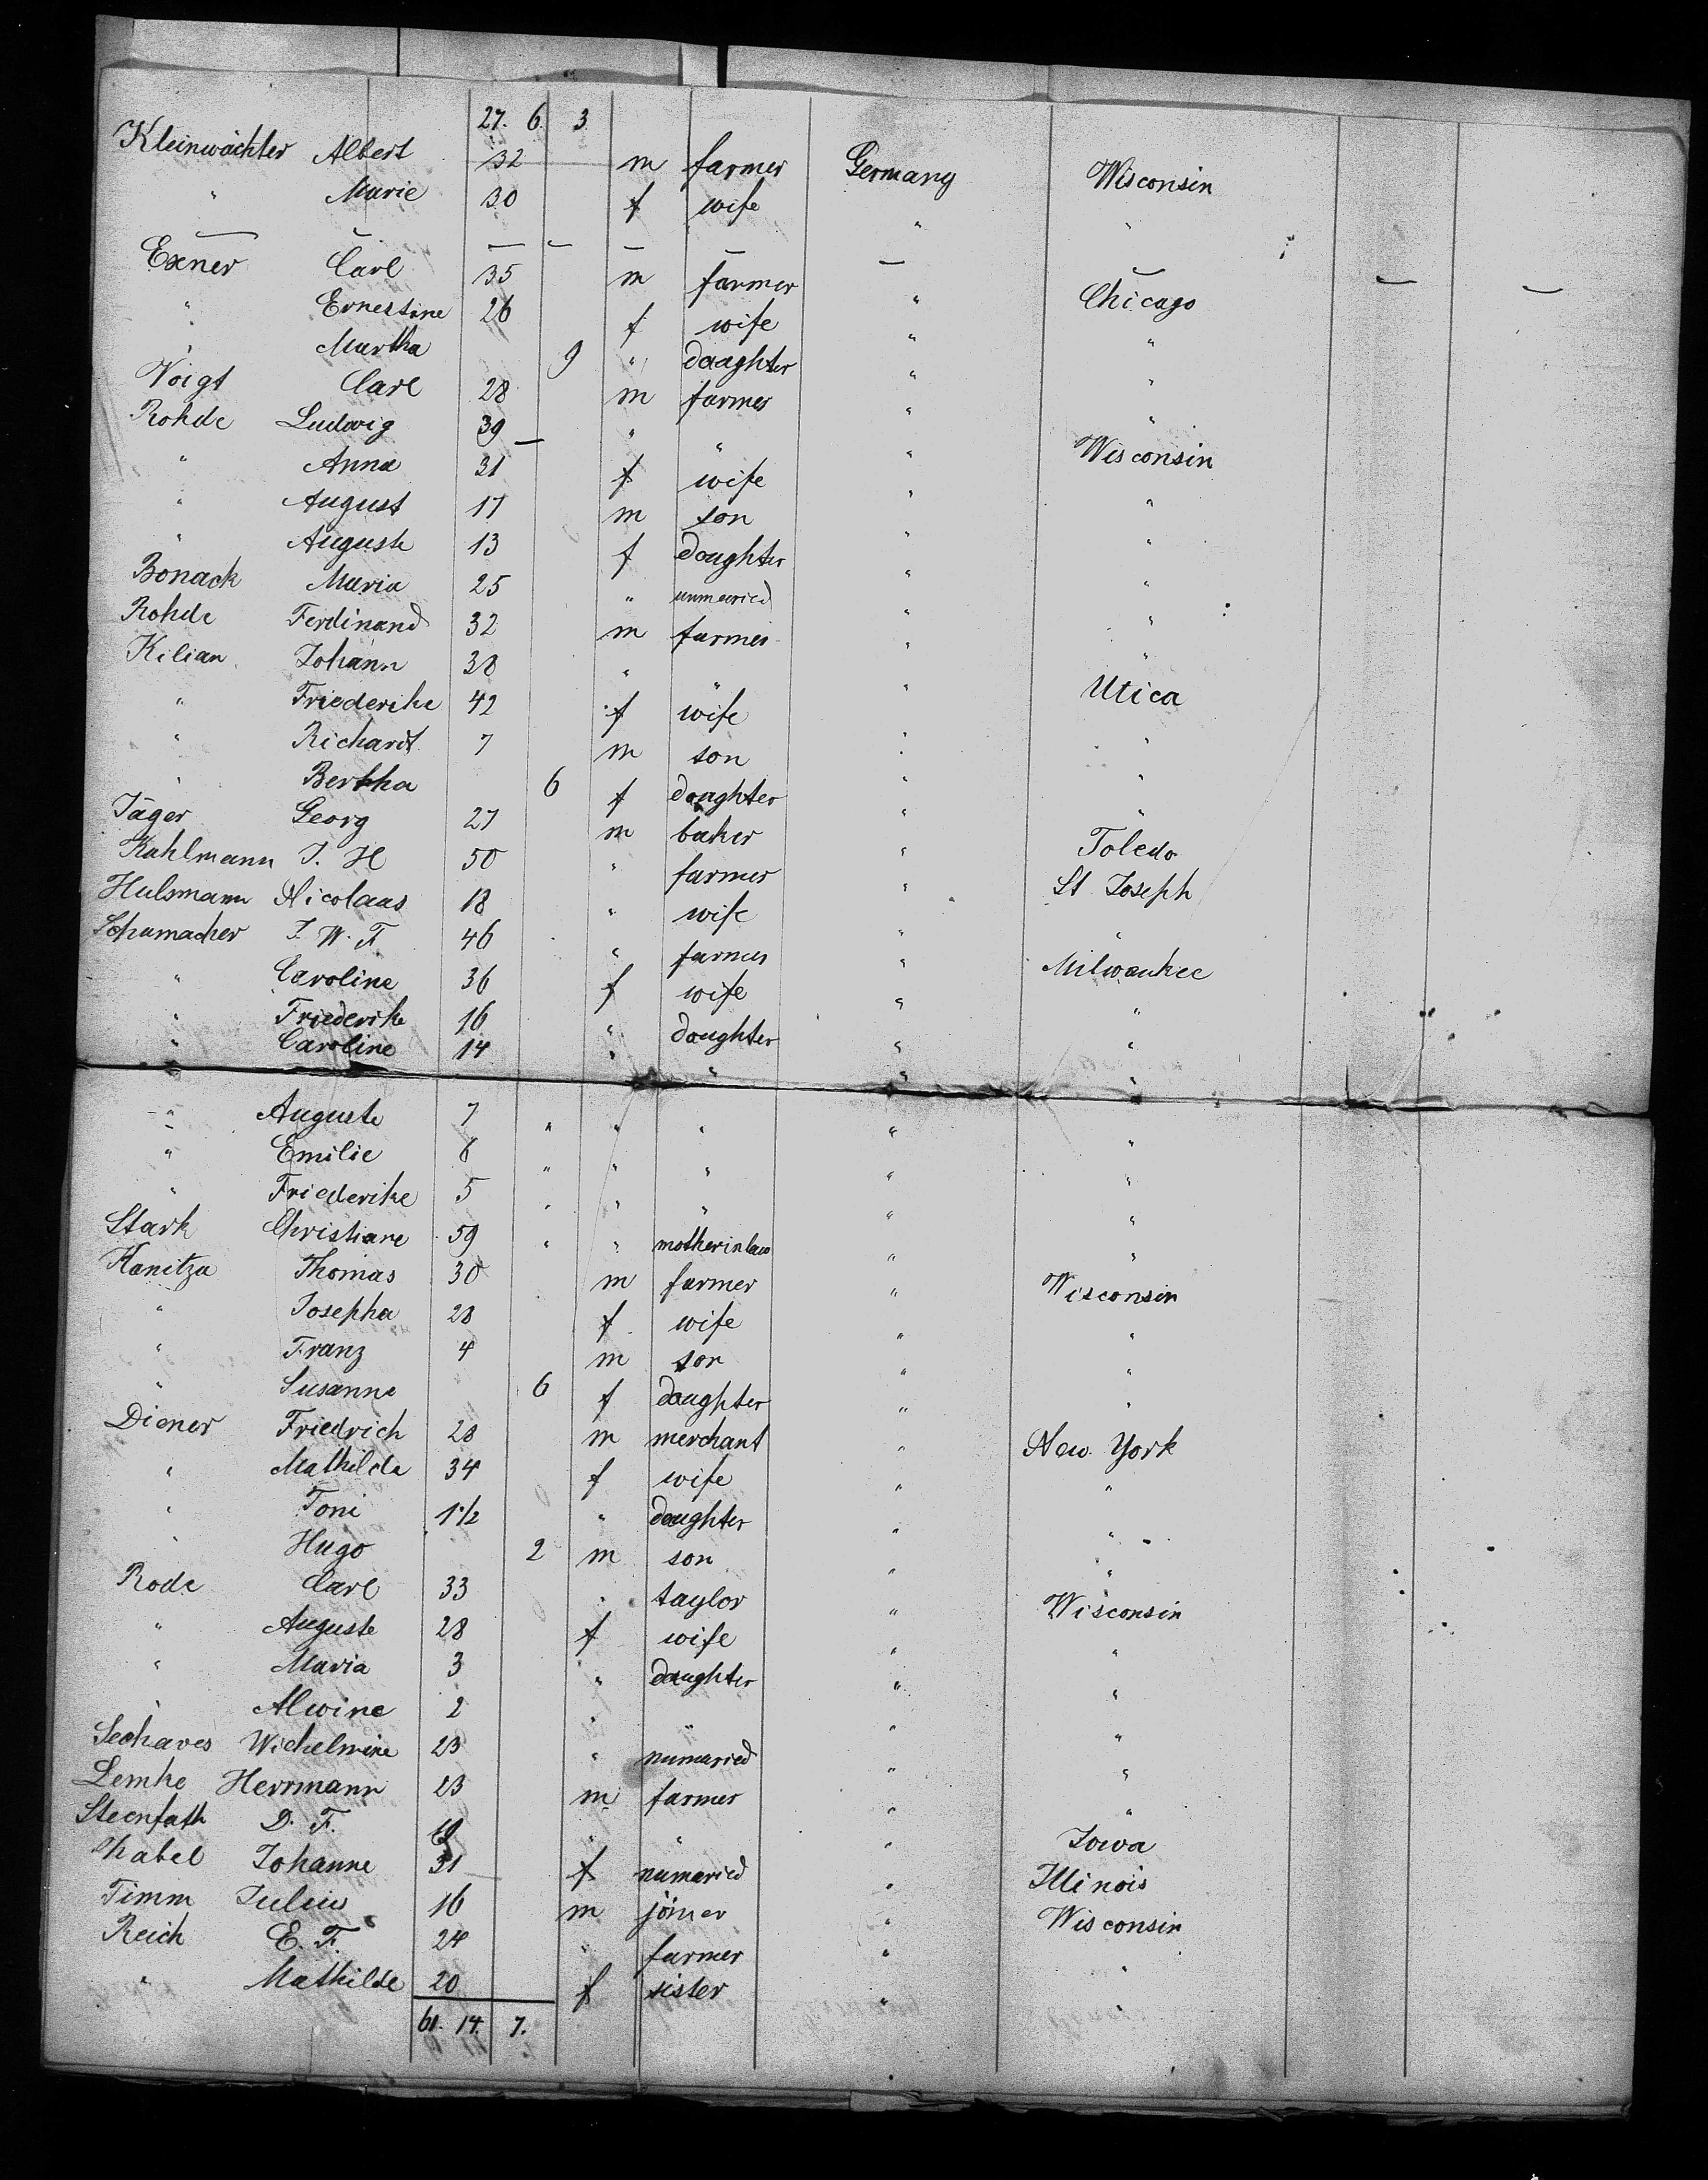 27. 6. 3
Kleinwächter Albert 32 m farmer Germany Wisconsin
" Marie 30 f wife " "
Exner Carl 35 m farmer " Chicago
" Ernestine 26 f wife " "
" Martha 9 " daughter " "
Voigt Carl 28 m farmer " "
Rohde Ludwig 39 " " " Wisconsin
" Anna 31 f wife " "
" August 17 m son " "
" Auguste 13 f daughter " "
Bonack Maria 25 " unmarried " "
Rohde Ferdinand 32 m farmer " "
Kilian Johann 38 " " " Utica
" Friederike 42 f wife " "
" Richardt 7 m son " "
" Bertha 6 f daughter " "
Jäger Georg 27 m baker " Toledo
Kahlmann J. H 50 " farmer " St Joseph
Hulsmann Nicolaas 18 " wife " "
Schumacher J. W. F 46 " farmer " Milwaukee
" Caroline 36 f wife " "
" Friederike 16 " daughter " "
" Caroline 14 " " " "
" Auguste 7 " " " " "
" Emilie 6 " " " " "
" Friederike 5 " " " " "
Stark Christiane 59 " " motherinlaw " "
Hanitza Thomas 30 m farmer " Wisconsin
" Josepha 28 f wife " "
" Franz 4 m son " "
" Susanne 6 f daughter " "
Diener Friedrich 28 m merchant " New York
" Mathilde 34 f wife " "
" Toni 1 1/2 " daughter " "
" Hugo 2 m son " "
Rode Carl 33 " taylor " Wisconsin
" Auguste 28 f wife " "
" Maria 3 " daughter " "
" Alwine 2 " " " "
Seehaves Wichelmine 23 " numaried " "
Lemke Herrmann 23 m farmer " "
Steenfath D. F. " " " Iowa
Johanne 31 f numaried " Illinois
Timm Julius 16 m joiner " Wisconsin
Reich E. F. 24 " farmer " "
" Mathilde 20 f sister " "
61. 14. 7.